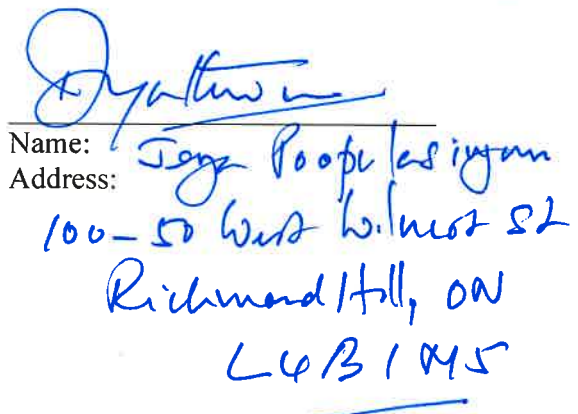 Name: Jeya Poopalasingam
Address:
100-50 West Wilmot St
Richmond Hill, ON
L4B 1M5